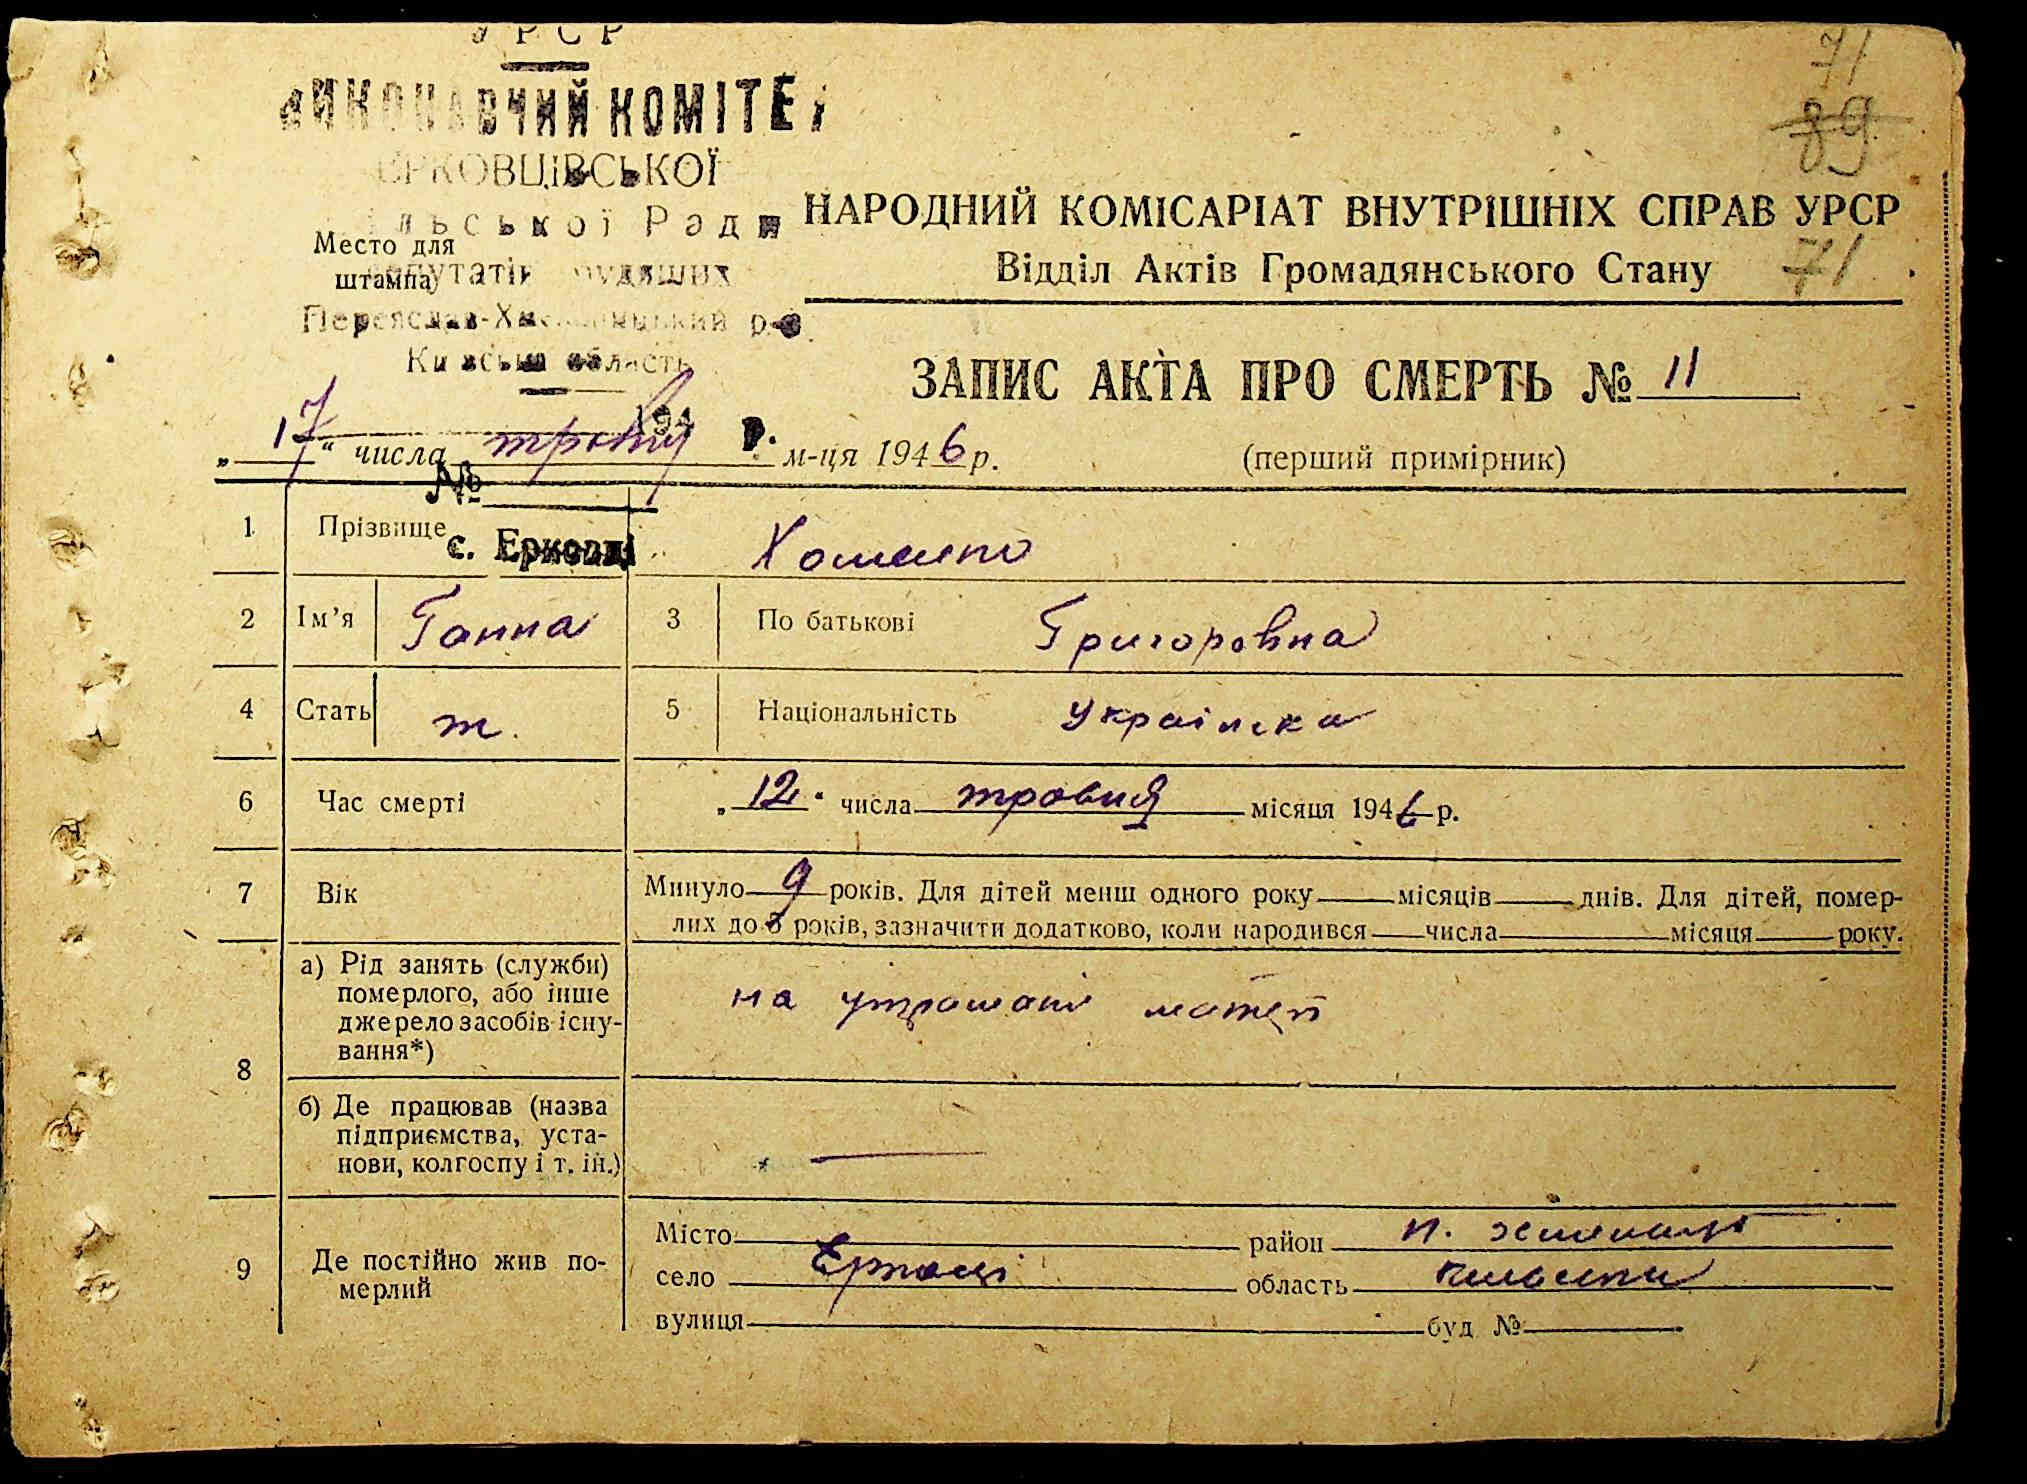 УРСР
ВИКОНАВЧИЙ КОМІТЕТ
ЄРКОВЦІВСЬКОЇ
ільської Ради
Место для
штампа
депутатів трудящих
Переяслав-Хмельницький р-н
Київська область
71
89
НАРОДНИЙ КОМІСАРІАТ ВНУТРІШНІХ СПРАВ УРСР
Відділ Актів Громадянського Стану
71
ЗАПИС АКТА ПРО СМЕРТЬ № 11
194 р.
„17“ числа травня м-ця 1946 р.
(перший примірник)
№
с. Єрковці
1 Прізвище Хоменко
2 Ім’я Ганна 3 По батькові Григоровна
4 Стать ж. 5 Національність Українка
6 Час смерті „12“ числа травня місяця 1946 р.
7 Вік Минуло 9 років. Для дітей менш одного року місяців днів. Для дітей, помер-
лих до 5 років, зазначити додатково, коли народився числа місяця року.
8 а) Рід занять (служби)
померлого, або інше
джерело засобів існу-
вання*)
на утриманні матері
б) Де працював (назва
підприємства, уста-
нови, колгоспу і т. ін.)
9 Де постійно жив по-
мерлий
Місто район П. Хмельниц
село Єрковці область Київська
вулиця буд №